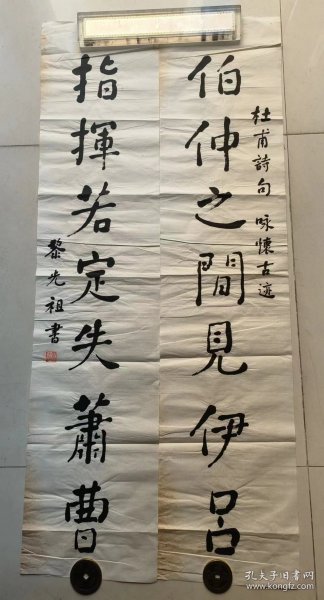 杜甫詩句 咏懷古迹
伯仲之間見伊呂
指揮若定失蕭曹
黎光祖書
孔夫子旧书网